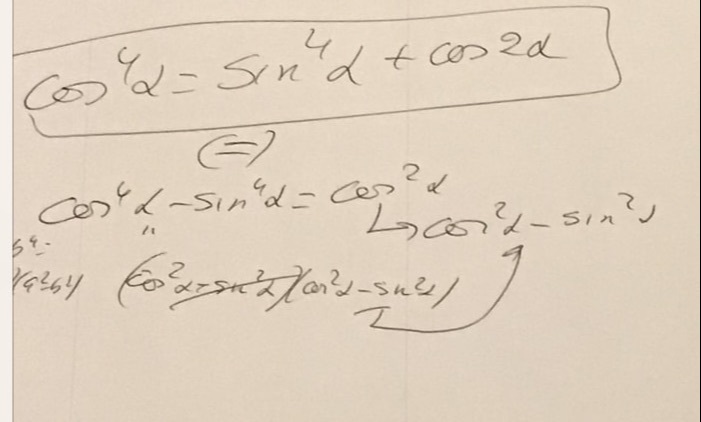 cos⁴α = sin⁴α + cos2α
(=)
cos⁴α - sin⁴α = cos²α
" ↳ cos²α - sin²α
(cos²α + sin²α)(cos²α - sin²α)